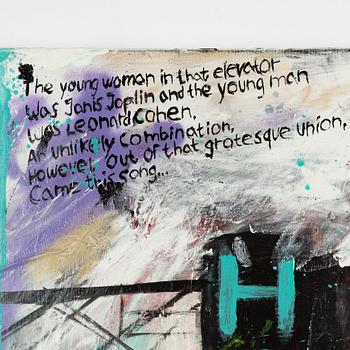 The young woman in that elevator
Was Janis Joplin and the young man
Was Leonard Cohen,
An unlikely combination,
However out of that gratesque union,
Came this song...
H